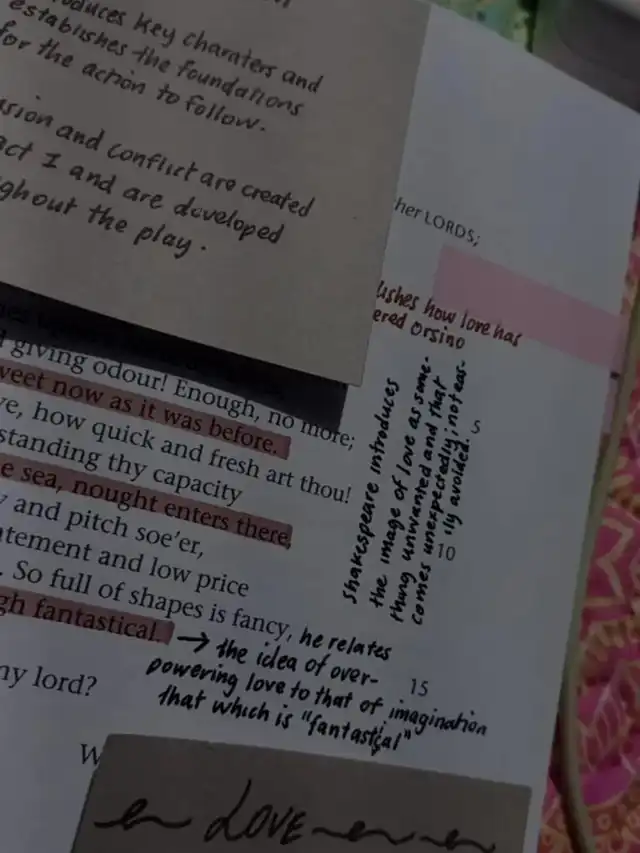 oduces key charaters and
establishes the foundations
for the action to follow.
sion and conflict are created
act I and are developed
ghout the play.
her LORDS;
ishes how love has
ered Orsino
giving odour! Enough, no more;
weet now as it was before.
ve, how quick and fresh art thou!
standing thy capacity
e sea, nought enters there,
y and pitch soe'er,
atement and low price
. So full of shapes is fancy,
gh fantastical.
my lord?
5
10
15
Shakespeare introduces
the image of love as some-
thing unwanted and that
comes unexpectedly; not eas-
ily avoided.
→ he relates
the idea of over-
powering love to that of imagination
that which is "fantastical"
W
LOVE